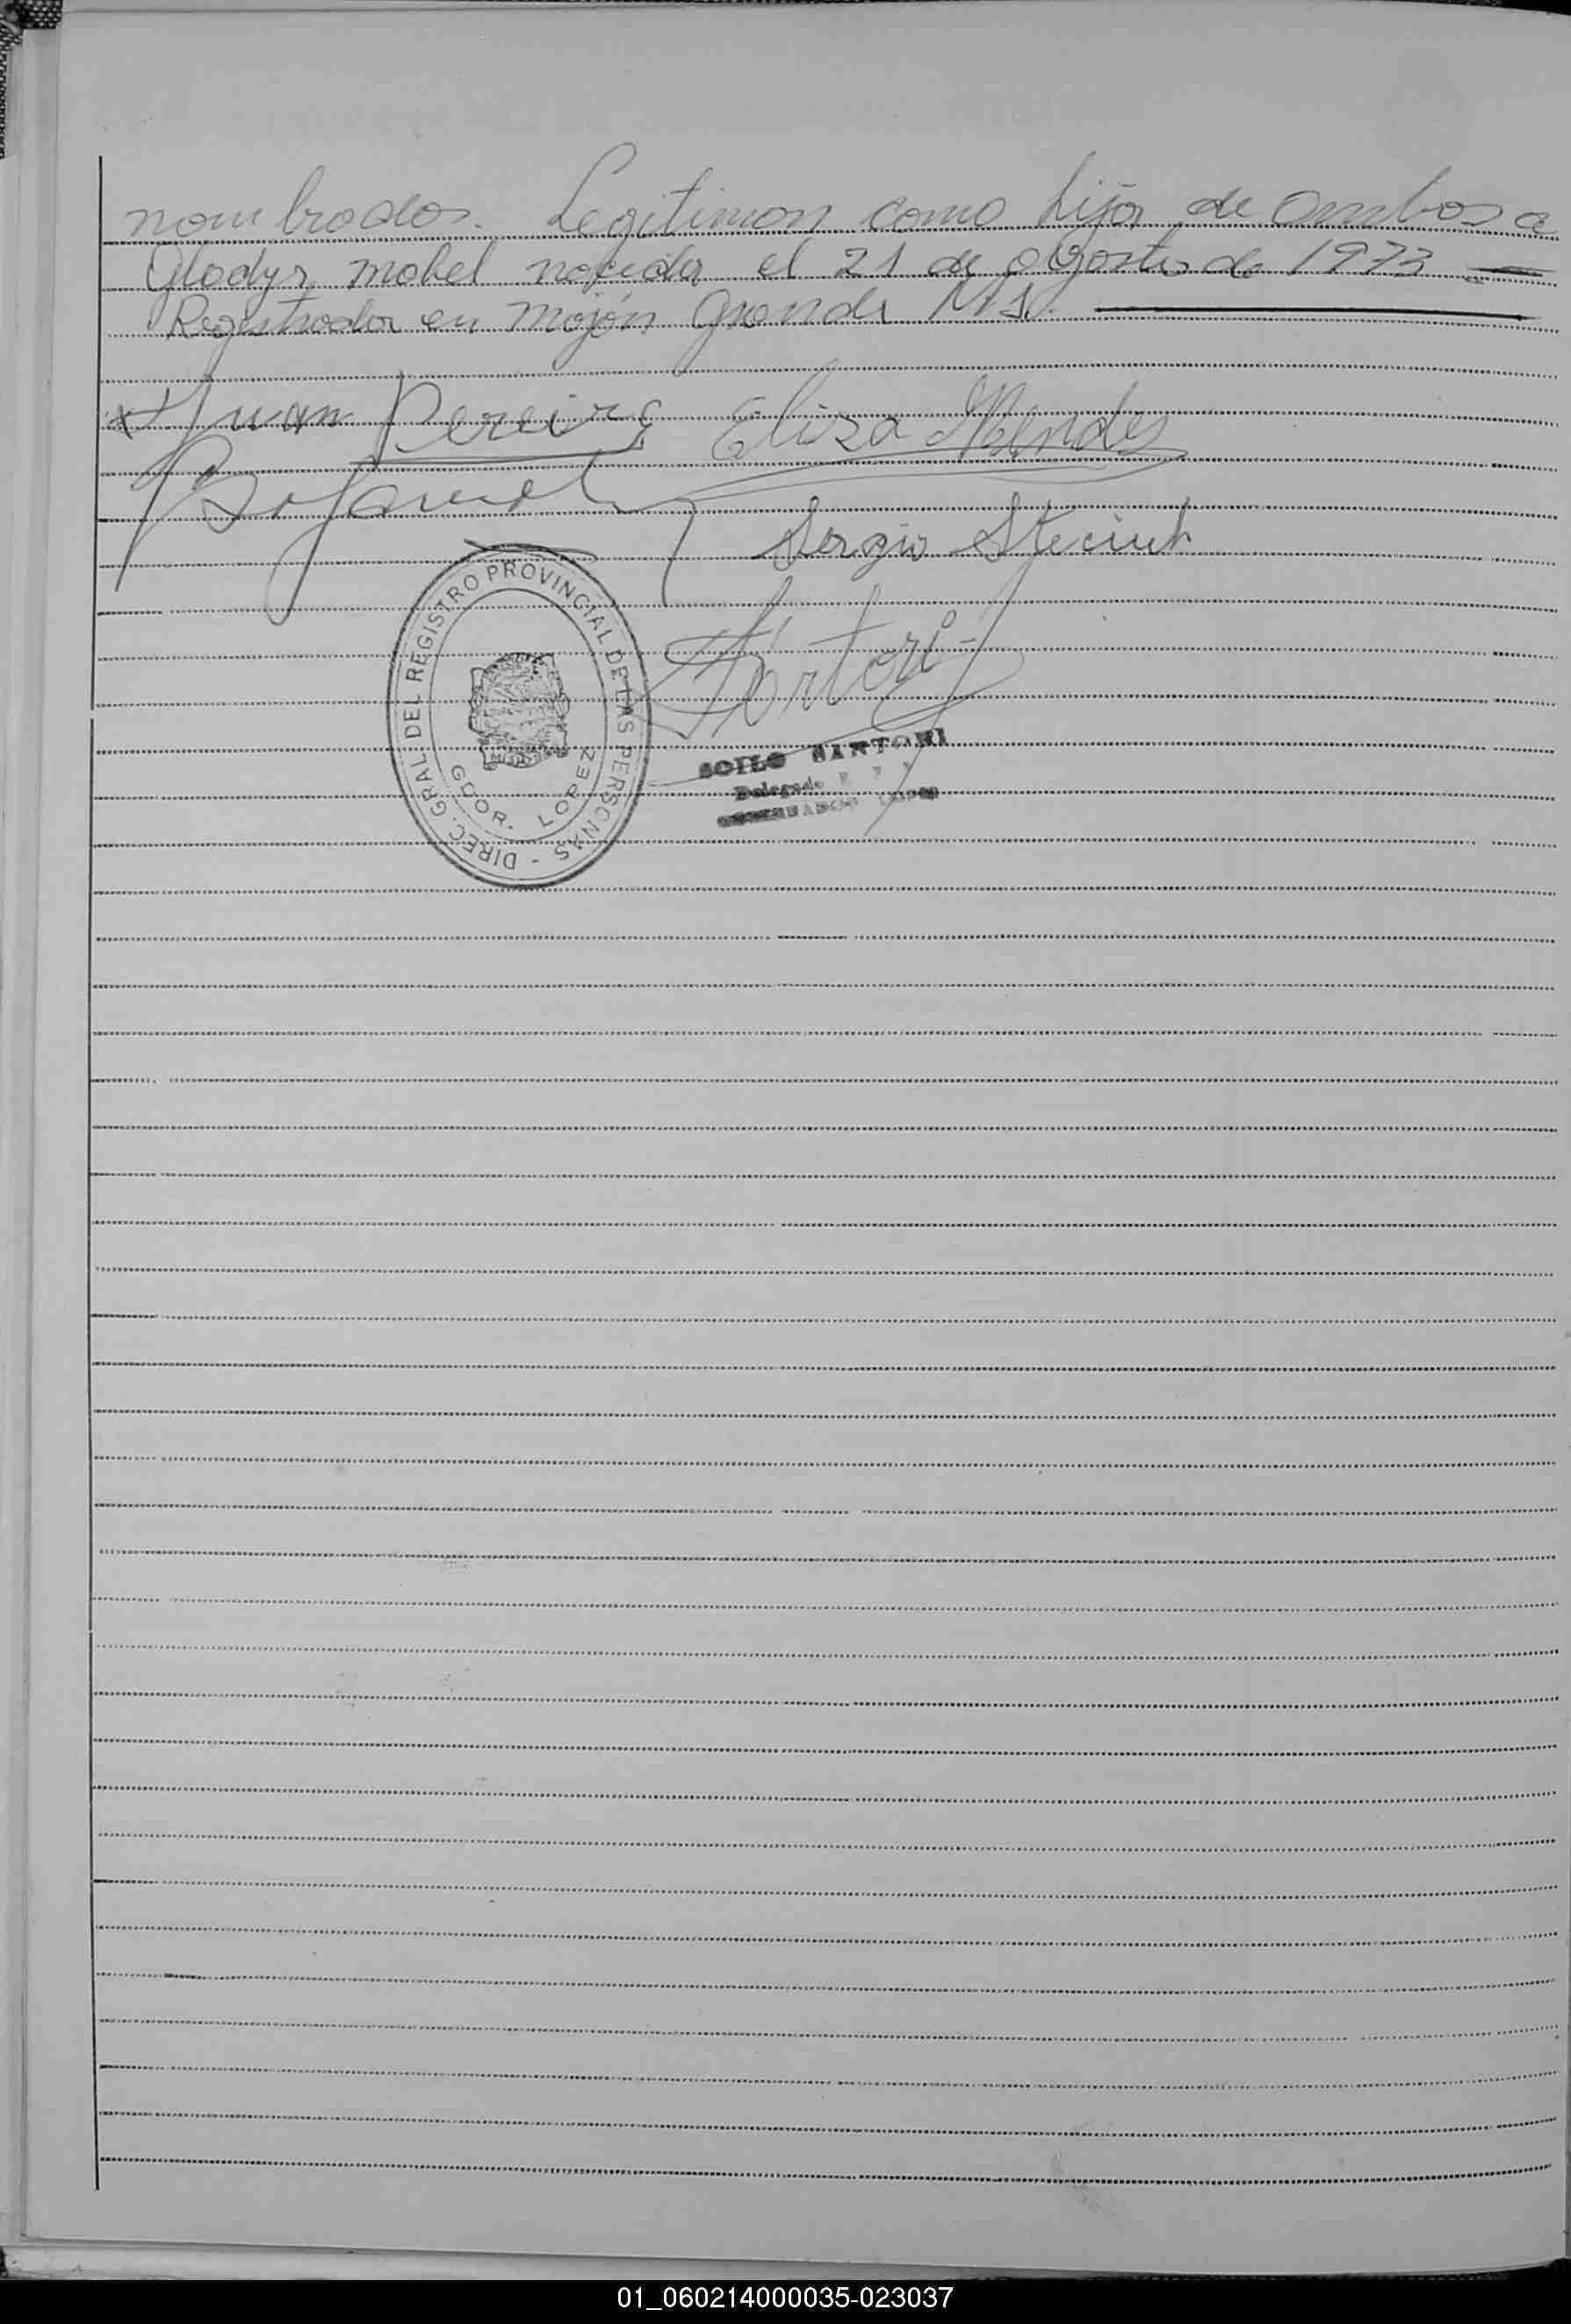 nombrados. Legitiman como hija de ambos a
Gladys mabel nacida el 21 de agosto de 1973
Registrada en mojón Grande
Juan Pereira Eliza Mendes
Sergio
Sartori
DIREC. GRAL. DEL REGISTRO PROVINCIAL DE LAS PERSONAS -
GDOR. LOPEZ
SOILO SARTORI
Delegado
01_060214000035-023037